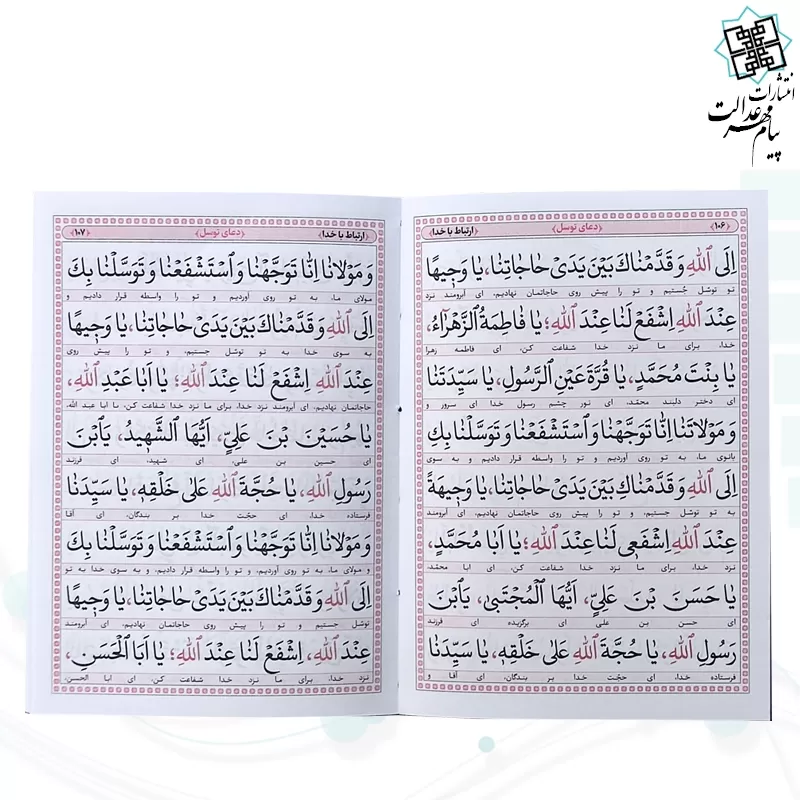 انتشارات
پیام مهر عدالت
﴿۱۰۶﴾ ﴿دعای توسل﴾ ﴿ارتباط با خدا﴾
اِلَی اللّٰهِ وَ قَدَّمْناكَ بَیْنَ یَدَیْ حاجاتِنا، یا وَجیهًا
تو توسّل جُستیم و تو را پیش روی حاجاتمان نهادیم، ای آبرومند نزد
عِنْدَ اللّٰهِ اِشْفَعْ لَنا عِنْدَ اللّٰهِ؛ یا فاطِمَةُ الزَّهْرٰاءُ،
خدا، برای ما نزد خدا شفاعت کن. ای فاطمه زهرا
یا بِنْتَ مُحَمَّدٍ، یا قُرَّةَ عَیْنِ الرَّسُولِ، یا سَیِّدَتَنا
ای دختر دلبند محمّد، ای نور چشم رسول خدا ای سرور و
وَ مَوْلاتَنا اِنّا تَوَجَّهْنا وَ اسْتَشْفَعْنا وَ تَوَسَّلْنا بِكِ
بانوی ما، به تو روی آوردیم و تو را واسطه قرار دادیم و به سوی
اِلَی اللّٰهِ وَ قَدَّمْناكِ بَیْنَ یَدَیْ حاجاتِنا، یا وَجیهَةً
به تو توسّل جستیم، و تو را پیش روی حاجاتمان نهادیم، ای آبرومند
عِنْدَ اللّٰهِ اِشْفَعی لَنا عِنْدَ اللّٰهِ؛ یا اَبا مُحَمَّدٍ،
نزد خدا، برای ما نزد خدا شفاعت کن. ای ابا محمّد
یا حَسَنَ بْنَ عَلِیٍّ، اَیُّهَا الْمُجْتَبیٰ، یَابْنَ
ای حسن بن علی ای برگزیده ای فرزند
رَسُولِ اللّٰهِ، یا حُجَّةَ اللّٰهِ عَلیٰ خَلْقِهِ، یا سَیِّدَنا
فرستاده خدا، ای حجّت خدا بر بندگان، ای آقا و
﴿ارتباط با خدا﴾ ﴿دعای توسل﴾ ﴿۱۰۷﴾
وَ مَوْلانا اِنّا تَوَجَّهْنا وَ اسْتَشْفَعْنا وَ تَوَسَّلْنا بِكَ
مولای ما، به تو روی آوردیم و تو را واسطه قرار دادیم و
اِلَی اللّٰهِ وَ قَدَّمْناكَ بَیْنَ یَدَیْ حاجاتِنا، یا وَجیهًا
به سوی خدا به تو توسّل جستیم، و تو را پیش روی
عِنْدَ اللّٰهِ اِشْفَعْ لَنا عِنْدَ اللّٰهِ؛ یا اَبا عَبْدِ اللّٰهِ،
حاجاتمان نهادیم، ای آبرومند نزد خدا، برای ما نزد خدا شفاعت کن. ای ابا عبد الله.
یا حُسَیْنَ بْنَ عَلِیٍّ، اَیُّهَا الشَّهیدُ، یَابْنَ
ای حسین بن علی، ای شهید، ای فرزند
رَسُولِ اللّٰهِ، یا حُجَّةَ اللّٰهِ عَلیٰ خَلْقِهِ، یا سَیِّدَنا
فرستاده خدا، ای حجّت خدا بر بندگان، ای آقا
وَ مَوْلانا اِنّا تَوَجَّهْنا وَ اسْتَشْفَعْنا وَ تَوَسَّلْنا بِكَ
و مولای ما، به تو روی آوردیم، و تو را واسطه قرار دادیم، و به سوی خدا به تو
اِلَی اللّٰهِ وَ قَدَّمْناكَ بَیْنَ یَدَیْ حاجاتِنا، یا وَجیهًا
توسّل جستیم و تو را پیش روی حاجاتمان نهادیم، ای آبرومند
عِنْدَ اللّٰهِ، اِشْفَعْ لَنا عِنْدَ اللّٰهِ؛ یا اَبَا الْحَسَنِ،
نزد خدا، برای ما نزد خدا شفاعت کن. ای ابا الحسن.